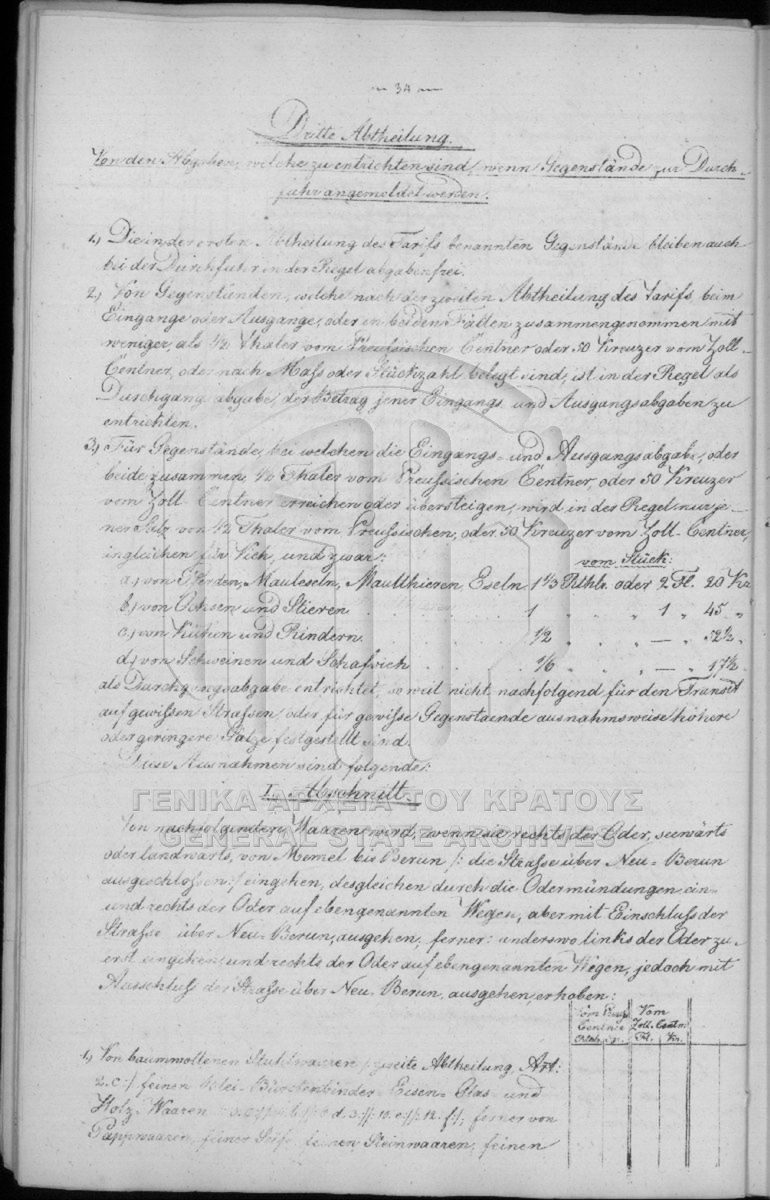 ~ 34 ~
Dritte Abtheilung.
Von den Abgaben, welche zu entrichten sind, wenn Gegenstände zur Durch-
fuhr angemeldet werden.
1.) Die in der ersten Abtheilung des Tarifs benannten Gegenstände bleiben auch
bei der Durchfuhr in der Regel abgabenfrei.
2.) Von Gegenständen, welche nach der zweiten Abtheilung des Tarifs beim
Eingange oder Ausgange, oder in beiden Fällen zusammengenommen mit
weniger, als 1/2 Thaler vom Preussischen Centner oder 50 Kreuzer vom Zoll-
Centner, oder nach Mass oder Stückzahl belegt sind, ist in der Regel als
Durchgangsabgabe der Betrag jener Eingangs und Ausgangsabgaben zu
entrichten.
3.) Für Gegenstände, bei welchen die Eingangs- und Ausgangsabgabe, oder
beide zusammen, 1/2 Thaler vom Preussischen Centner, oder 50 Kreuzer
vom Zoll-Centner erreichen oder übersteigen, wird in der Regel nur je-
ner Satz von 1/2 Thaler vom Preussischen, oder 50 Kreuzer vom Zoll-Centner,
ingleichen für Vieh, und zwar:
vom Stück:
a.) von Pferden, Mauleseln, Maulthieren, Eseln 1 1/3 Rthlr. oder 2 Fl. 20 Kr.
b.) von Ochsen und Stieren . . . . . 1 " " 1 " 45 "
c.) von Kühen und Rindern . . . . . 1/2 " " — " 52 1/2 "
d.) von Schweinen und Schafvieh . . . . . 1/6 " " — " 17 1/2 "
als Durchgangsabgabe entrichtet, so weit nicht nachfolgend für den Transit
auf gewissen Strassen oder für gewisse Gegenstaende ausnahmsweise höhere
oder geringere Sätze festgestellt sind.
Diese Ausnahmen sind folgende:
I. Abschnitt.
ΓΕΝΙΚΑ ΑΡΧΕΙΑ ΤΟΥ ΚΡΑΤΟΥΣ
GENERAL STATE ARCHIVES
Von nachfolgenden Waaren wird, wenn sie rechts der Oder, seewärts
oder landwärts, von Memel bis Berun /: die Strasse über Neu-Berun
ausgeschlossen :/ eingehen, desgleichen durch die Odermündungen ein-
und rechts der Oder auf ebengenannten Wegen, aber mit Einschluss der
Strasse über Neu-Berun, ausgehen, ferner: anderswo links der Oder zu-
erst eingehen, und rechts der Oder auf ebengenannten Wegen, jedoch mit
Ausschluss der Strasse über Neu-Berun, ausgehen, erhoben:
Vom Preuss. Centner Vom Zoll-Centn.
Fl. Kr.
1.) Von baumwollenen Stuhlwaaren /: zweite Abtheilung Art:
2. c :/ feinen Blei- Bürstenbinder- Eisen- Glas- und
Holz-Waaren ferner von
Pappwaaren, feiner Seife, feinen Steinwaaren, feinen